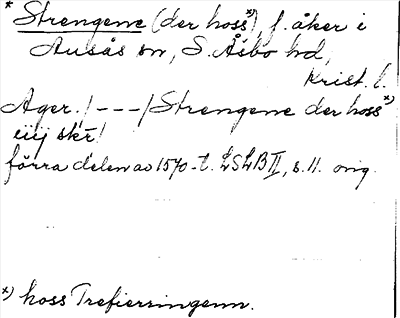 * Strengene (der hoss*), f. åker i
Ausås sn, S. Åsbo hd,
Krist. l.
Ager. /---/ Strengene der hoss*)
iiij skr̄!
förra delen av 1570-t. LSLB II, s. 11. orig.
*) hoss Trefierringenn.